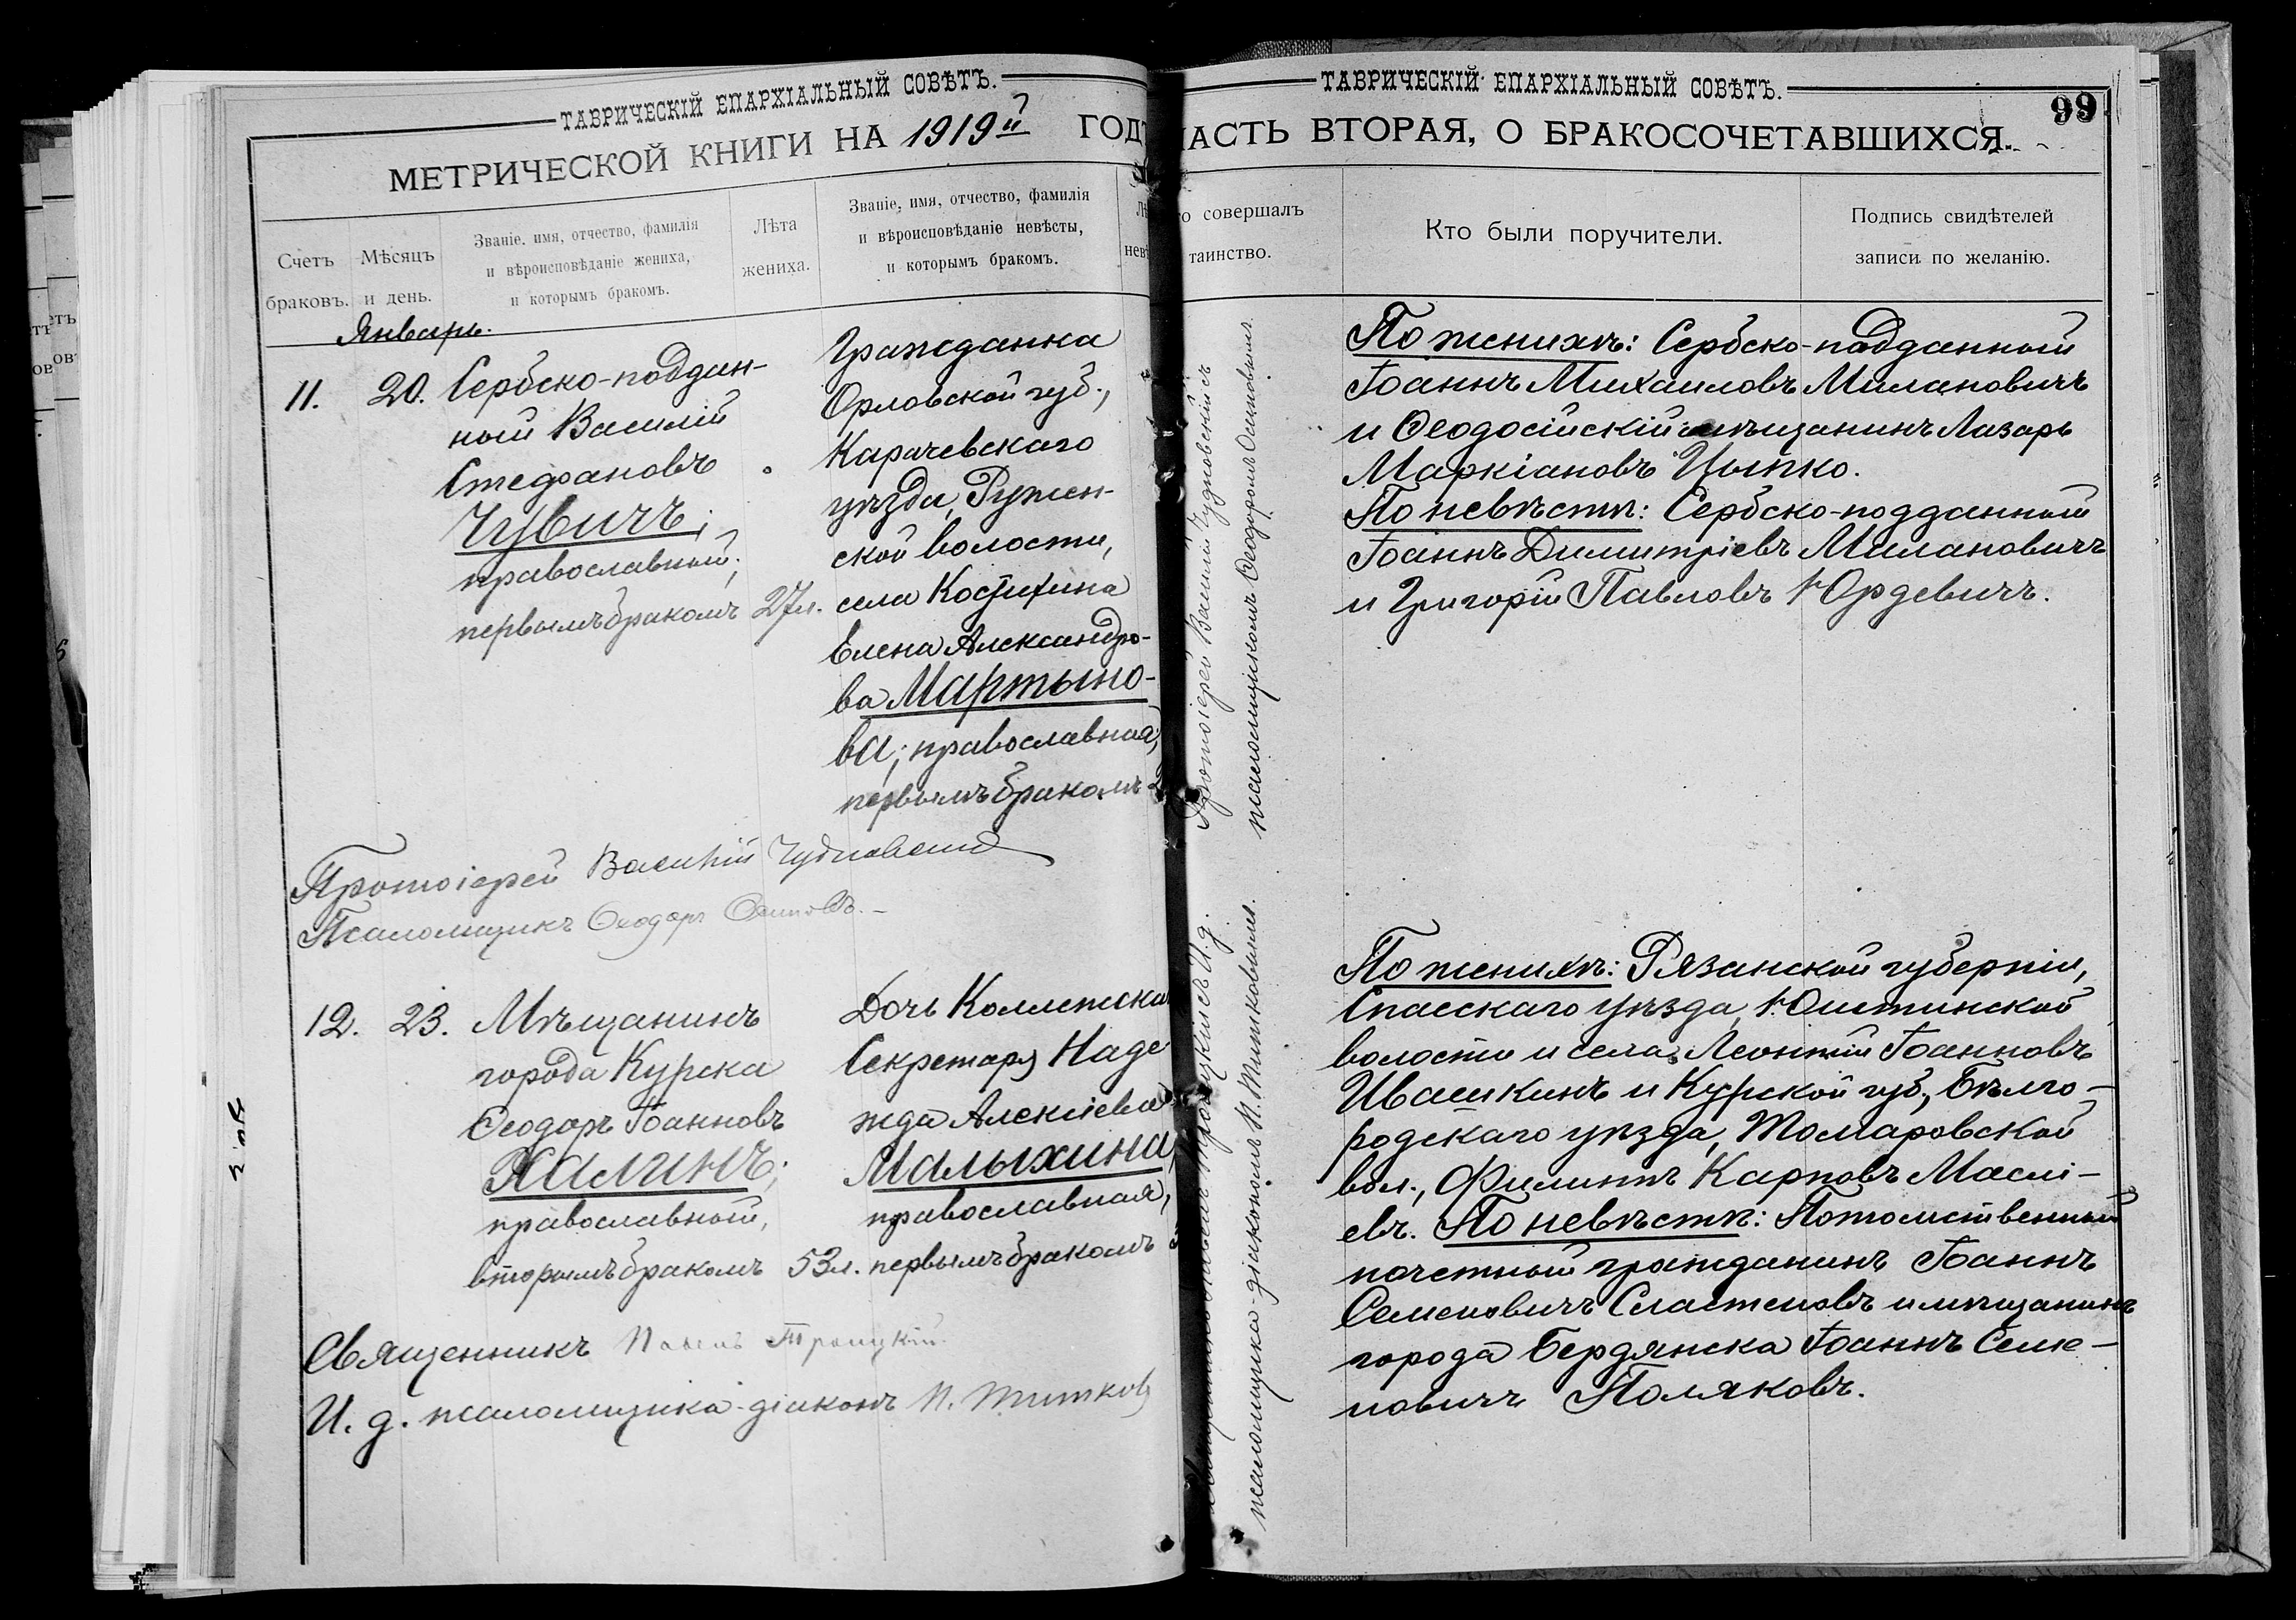 ТАВРИЧЕСКІЙ ЕПАРХІАЛЬНЫЙ СОВѢТЪ.
МЕТРИЧЕСКОЙ КНИГИ НА 1919й ГОД
Счетъ браковъ.
Мѣсяцъ и день.
Званіе, имя, отчество, фамилія
и вѣроисповѣданіе жениха,
и которымъ бракомъ.
Лѣта жениха.
Званіе, имя, отчество, фамилія
и вѣроисповѣданіе невѣсты,
и которымъ бракомъ.
Январь.
11.
20.
Сербско-поддан-
ный Василій
Стефановъ
Чувичъ;
православный;
первымъ бракомъ
27 л.
Гражданка
Орловской губ.,
Карачевскаго
уѣзда, Ружен-
ской волости,
села
Елена Александро-
ва Мартыно-
ва; православная;
первымъ бракомъ
Протоіерей Василій Чудновскій
Псаломщикъ Ѳеодоръ Осиповъ.
12.
23.
Мѣщанинъ
города Курска
Ѳеодоръ Іоанновъ
православный,
вторымъ бракомъ
53 л.
Дочь
Секретаря Наде
жда Алексіева
Малыхина,
православная,
первымъ бракомъ
Священникъ Павелъ Троицкій.
И. д. псаломщика-діаконъ П. Титковъ
ТАВРИЧЕСКІЙ ЕПАРХІАЛЬНЫЙ СОВѢТЪ.
99
АСТЬ ВТОРАЯ, О БРАКОСОЧЕТАВШИХСЯ.
о совершалъ
таинство.
Кто были поручители.
Подпись свидѣтелей
записи по желанію.
Протоіерей Василій Чудновскій съ
псаломщикомъ Ѳеодоромъ Осиповымъ.
По женихѣ: Сербско-подданный
Іоаннъ Михаиловъ Милановичъ
и Ѳеодосійскій мѣщанинъ Лазарь
Маркіановъ Цыпко.
По невѣстѣ: Сербско-подданный
Іоаннъ Димитріевъ Милановичъ
и Григорій Павловъ Юрдевичъ.
И. д.
псаломщика-діакономъ П. Титковымъ.
По женихѣ: Рязанской губерніи,
Спасскаго уѣзда,
волости и села, Леонтій Іоанновъ
Ивашкинъ и Курской губ., Бѣлго-
родскаго уѣзда, Томаровской
вол., Филиппъ Карповъ
евъ. По невѣстѣ: Потомственный
почетный гражданинъ Іоаннъ
Семеновичъ Сластеновъ и мѣщанинъ
города Бердянска Іоаннъ Семе-
новичъ Поляковъ.